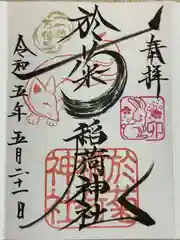 奉拝
卯
於菊
稲荷神社
於菊稲荷神社
令和五年五月二十一日